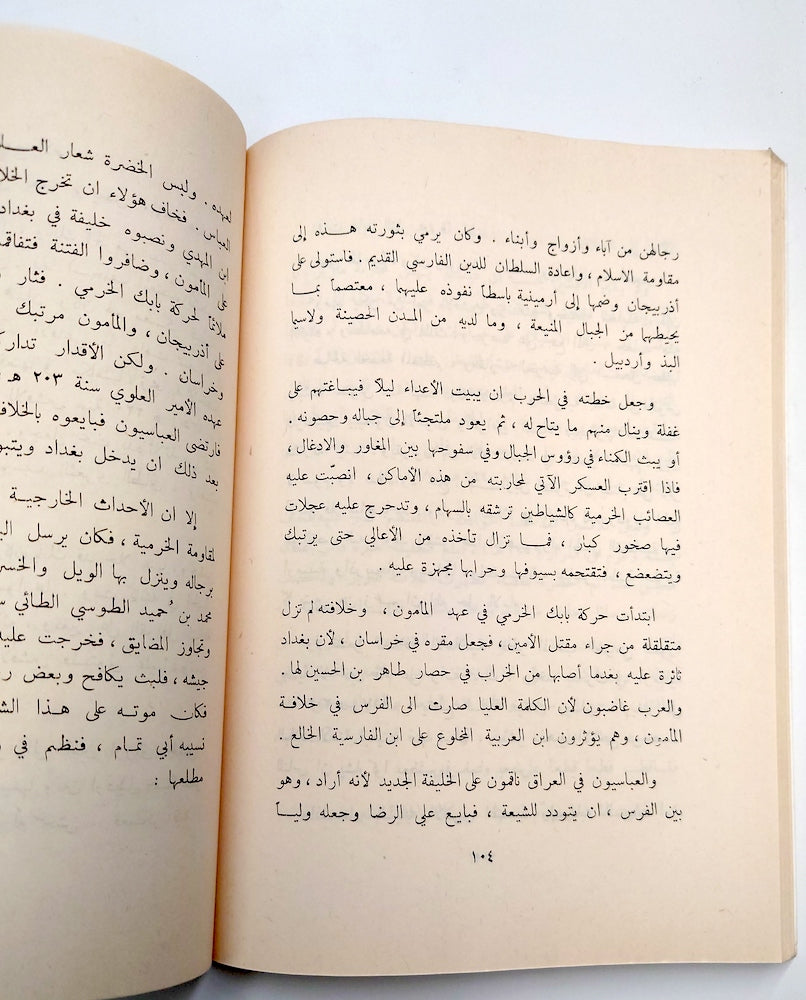 رجالهن من آباء وأزواج وأبناء . وكان يرمي بثورته هذه إلى
مقاومة الاسلام ، واعادة السلطان للدين الفارسي القديم . فاستولى على
أذربيجان وضمها إلى أرمينية باسطاً نفوذه عليهما ، معتصماً بما
يحيطهما من الجبال المنيعة ، وما لديه من المدن الحصينة ولاسيما
البذ وأردبيل .
وجعل خطته في الحرب ان يبيت الأعداء ليلاً فيباغتهم على
غفلة وينال منهم ما يتاح له ، ثم يعود ملتجئاً إلى جباله وحصونه .
أو يبث الكمناء في رؤوس الجبال وفي سفوحها بين المغاور والادغال ،
فاذا اقترب العسكر الآتي لمحاربته من هذه الأماكن ، انصبّت عليه
العصائب الخرمية كالشياطين ترشقه بالسهام ، وتدحرج عليه عجلات
فيها صخور كبار ، فما تزال تأخذه من الأعالي حتى يرتبك
ويتضعضع ، فتقتحمه بسيوفها وحرابها مجهزة عليه .
ابتدأت حركة بابك الخرمي في عهد المأمون ، وخلافته لم تزل
متقلقلة من جراء مقتل الأمين ، فجعل مقره في خراسان ، لأن بغداد
ثائرة عليه بعدما أصابها من الخراب في حصار طاهر بن الحسين لها .
والعرب غاضبون لأن الكلمة العليا صارت الى الفرس في خلافة
المأمون ، وهم يؤثرون ابن العربية المخلوع على ابن الفارسية الخالع .
والعباسيون في العراق ناقمون على الخليفة الجديد لأنه أراد ، وهو
بين الفرس ، ان يتودد للشيعة ، فبايع علي الرضا وجعله وليـاً
١٠٤
لعهده . ولبس الخضرة شعار
العباس . فخاف هؤلاء ان تخرج
ابن المهدي ونصبوه خليفة في بغداد
على المأمون ، وضافروا الفتنة
ملائماً لحركة بابك الخرمي . فثار
على أذربيجان ، والمأمون مرتبك
وخراسان . ولكن الأقدار
عهده الأمير العلوي سنة ٢٠٣ هـ
فارتضى العباسيون فبايعوه
بعد ذلك ان يدخل بغداد
إلا ان الأحداث الخارجية
لمقاومة الخرمية ، فكان يرسل
برجاله وينزل بها الويل
محمد بن حُميد الطوسي الطائي
وتجاوز المضايق ، فخرجت
جيشه ، فلبث يكافح وبعض
فكان موته على هذا
نسيبه أبي تمام ، فنظم في
مطلعها :